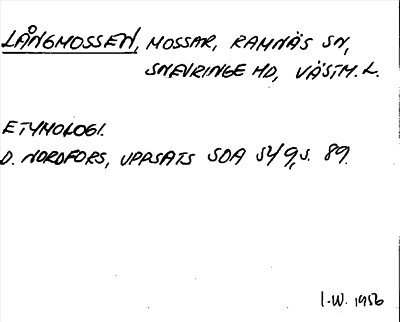 LÅNGMOSSEN, MOSSAR, RAMNÄS SN,
SNEVRINGE HD, VÄSTM. L.
ETYMOLOGI.
D. NORDFORS, UPPSATS SOA 549, S. 89.
I.W. 1956